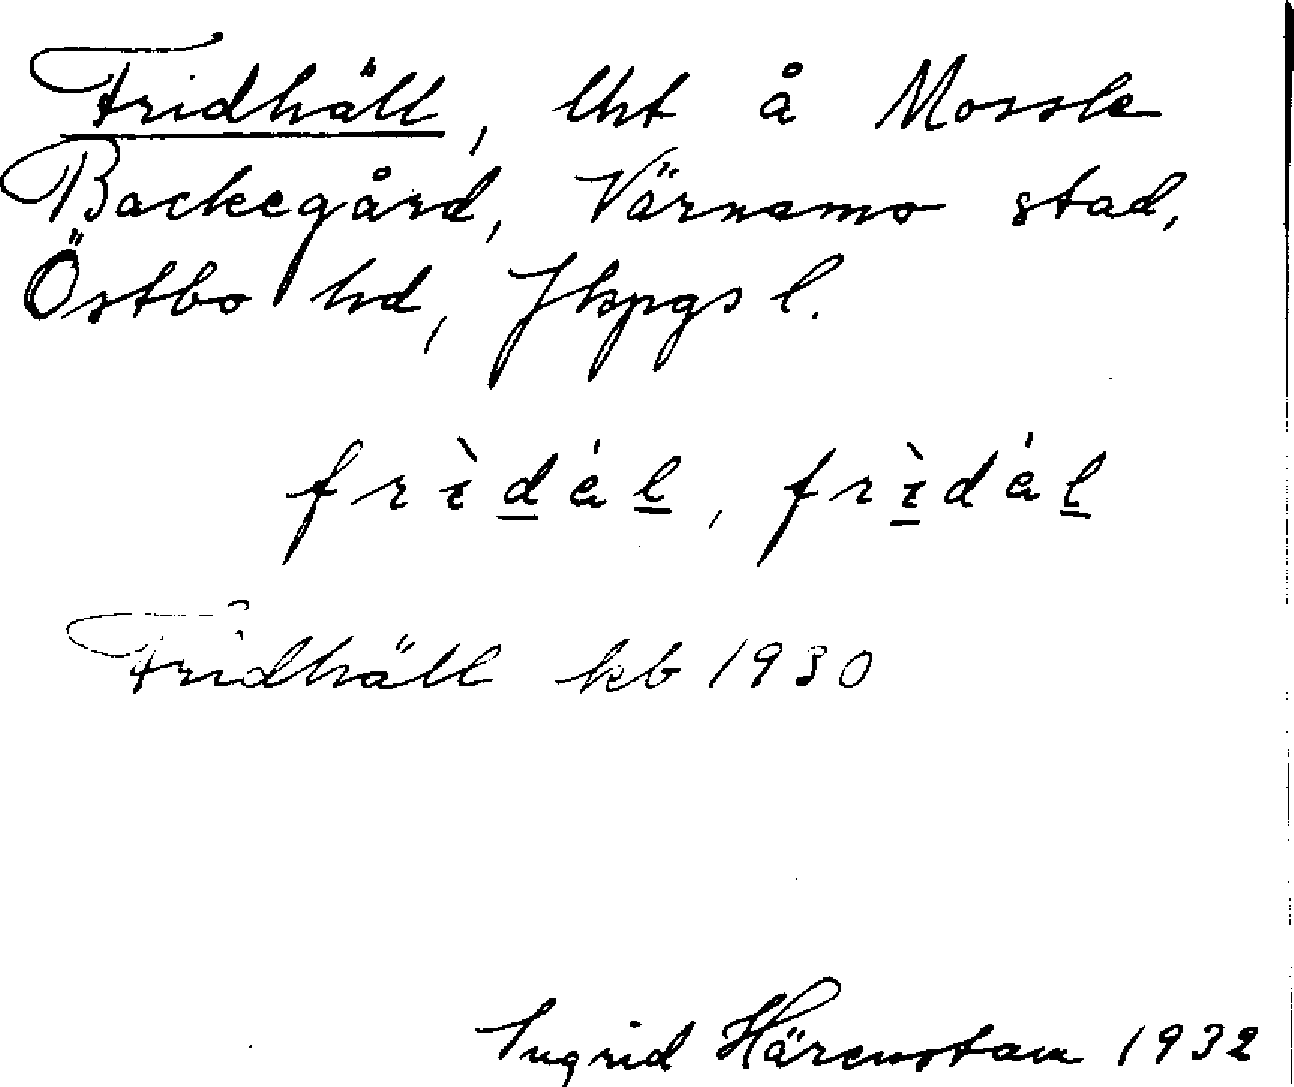 Fridhäll, lht å Mossle
Backegård, Värnamo stad,
Östbo hd, Jkpgs l.
frìdál, frìdál
Fridhäll kb 1930
Ingrid Härenstam 1932